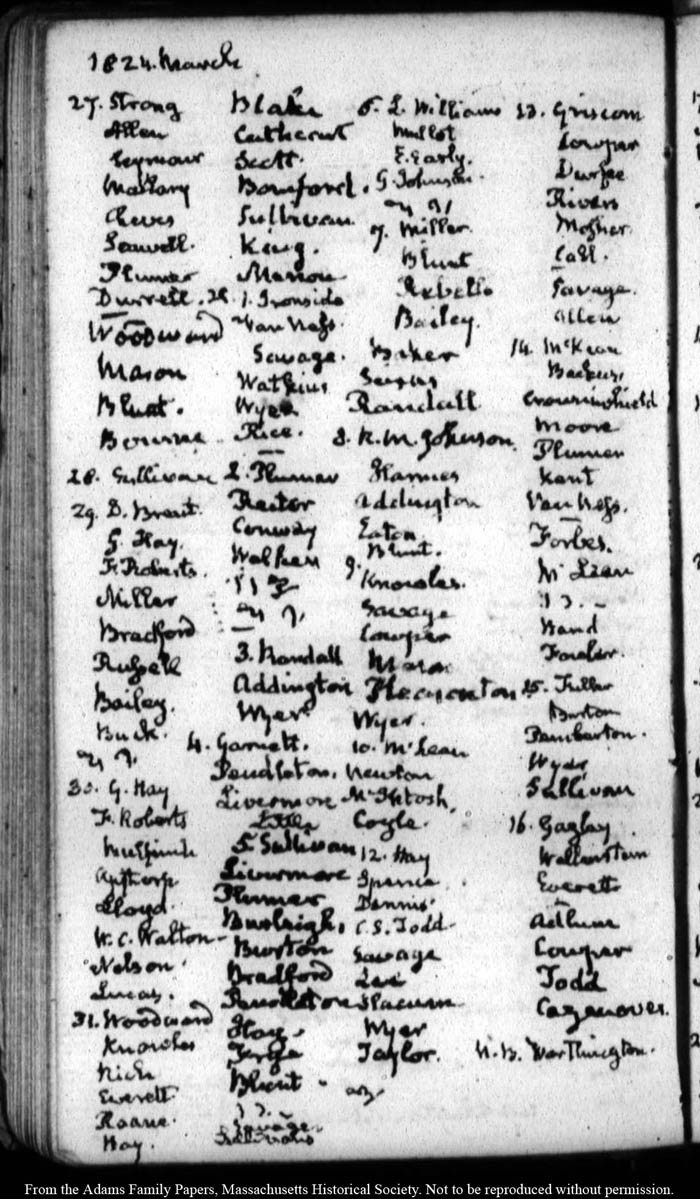 1824. March
27. Strong
Allen
Seymour
Mallary
Cheves
Seawell.
Plumer
Durrell.
Woodward
Mason
Blunt.
Bourne
28. Sullivan
29. D. Brent.
G. Hay.
F. Roberts.
Miller
Bradford
Russell
Bailey.
Buck.
30. G. Hay
F. Roberts
Bulfinch
Apthorp
Lloyd.
W. C. Walton
Nelson.
Lucas.
31. Woodward
Knowles
Rich
Everett
Roane.
Hay.
Blake
Cathcart
Scott.
Bomford.
Sullivan
King.
Marion
1. Ironside
Van Ness.
Savage.
Watkins
Wyer
Rice.
2. Plumer
Rector
Conway
Walker
3. Randall
Addington
Wyer
4. Garnett.
Pendleton.
Livermore
Little
F. Sullivan
Livermore
Plumer
Burleigh,
Burton
Bradford
Pendleton
Hay.
Forsyth
Blunt.
Savage.
5. L. Williams
E. Early.
G. Johnson.
7. Miller.
Blunt
Rebello
Bailey.
Baker
Randall
8. R. M. Johnson.
Addington
Eaton.
Blunt.
9. Knowles.
Savage
Cowper
Mason
Pleasonton
Wyer.
10. McLean
Newton
McIntosh.
Coyle.
12. Hay
Spence
Dennis
C. S. Todd
Savage
Lee
Slacum
Wyer
Taylor.
13. Griscom
Cowper
Durfee
Rivers
Mosher
Call.
Savage.
Allen
14. McKean
Backus,
Crowninshield
Moore
Plumer
Kent
Van Ness.
Forbes.
McLean
Hand
Fowler.
15. Fuller
Burton
Pemberton.
Wyer
Sullivan
16. Gazlay
Wallenstein
Everett
Adlum
Cowper
Todd
Cazenoves.
N. B. Worthington.
From the Adams Family Papers, Massachusetts Historical Society. Not to be reproduced without permission.